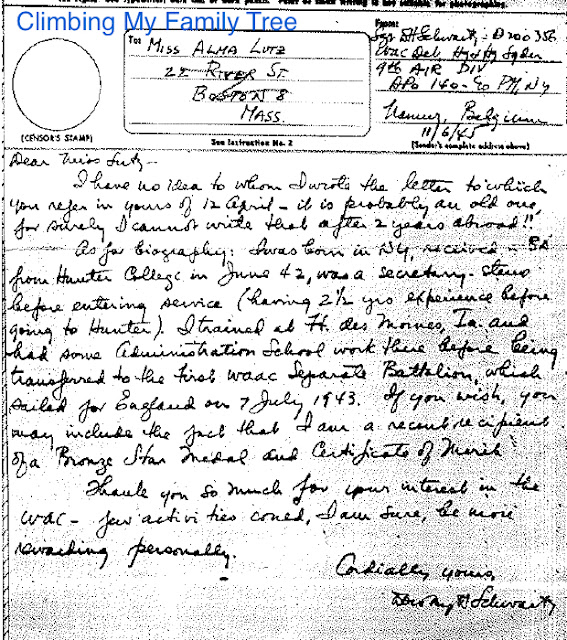 Climbing My Family Tree
To: MISS ALMA LUTZ
22 RIVER ST.
BOSTON 8
MASS.
(CENSOR'S STAMP)
See Instruction No. 2
From:
Sgt DH Schwartz - D200356
Wac Det Hq & Hq Sqdn
9th AIR DIV
APO 140 - % PM, NY
Namur, Belgium
11/6/45
(Sender's complete address above)
Dear Miss Lutz -
I have no idea to whom I wrote the letter to which
you refer in yours of 12 April - it is probably an old one,
for surely I cannot write that after 2 years abroad!!
As for biography: I was born in NY, received - BA
from Hunter College in June 42, was a secretary-steno
before entering service (having 2 1/2 yrs experience before
going to Hunter). I trained at Ft. des Moines, Ia. and
had some Administration School work there before being
transferred to the First WAAC Separate Battalion, which
sailed for England on 7 July 1943. If you wish, you
may include the fact that I am a recent recipient
of a Bronze Star Medal and Certificate of Merit.
Thank you so much for your interest in the
WAC - few activities could, I am sure, be more
rewarding personally.
Cordially yours,
Dorothy H Schwartz